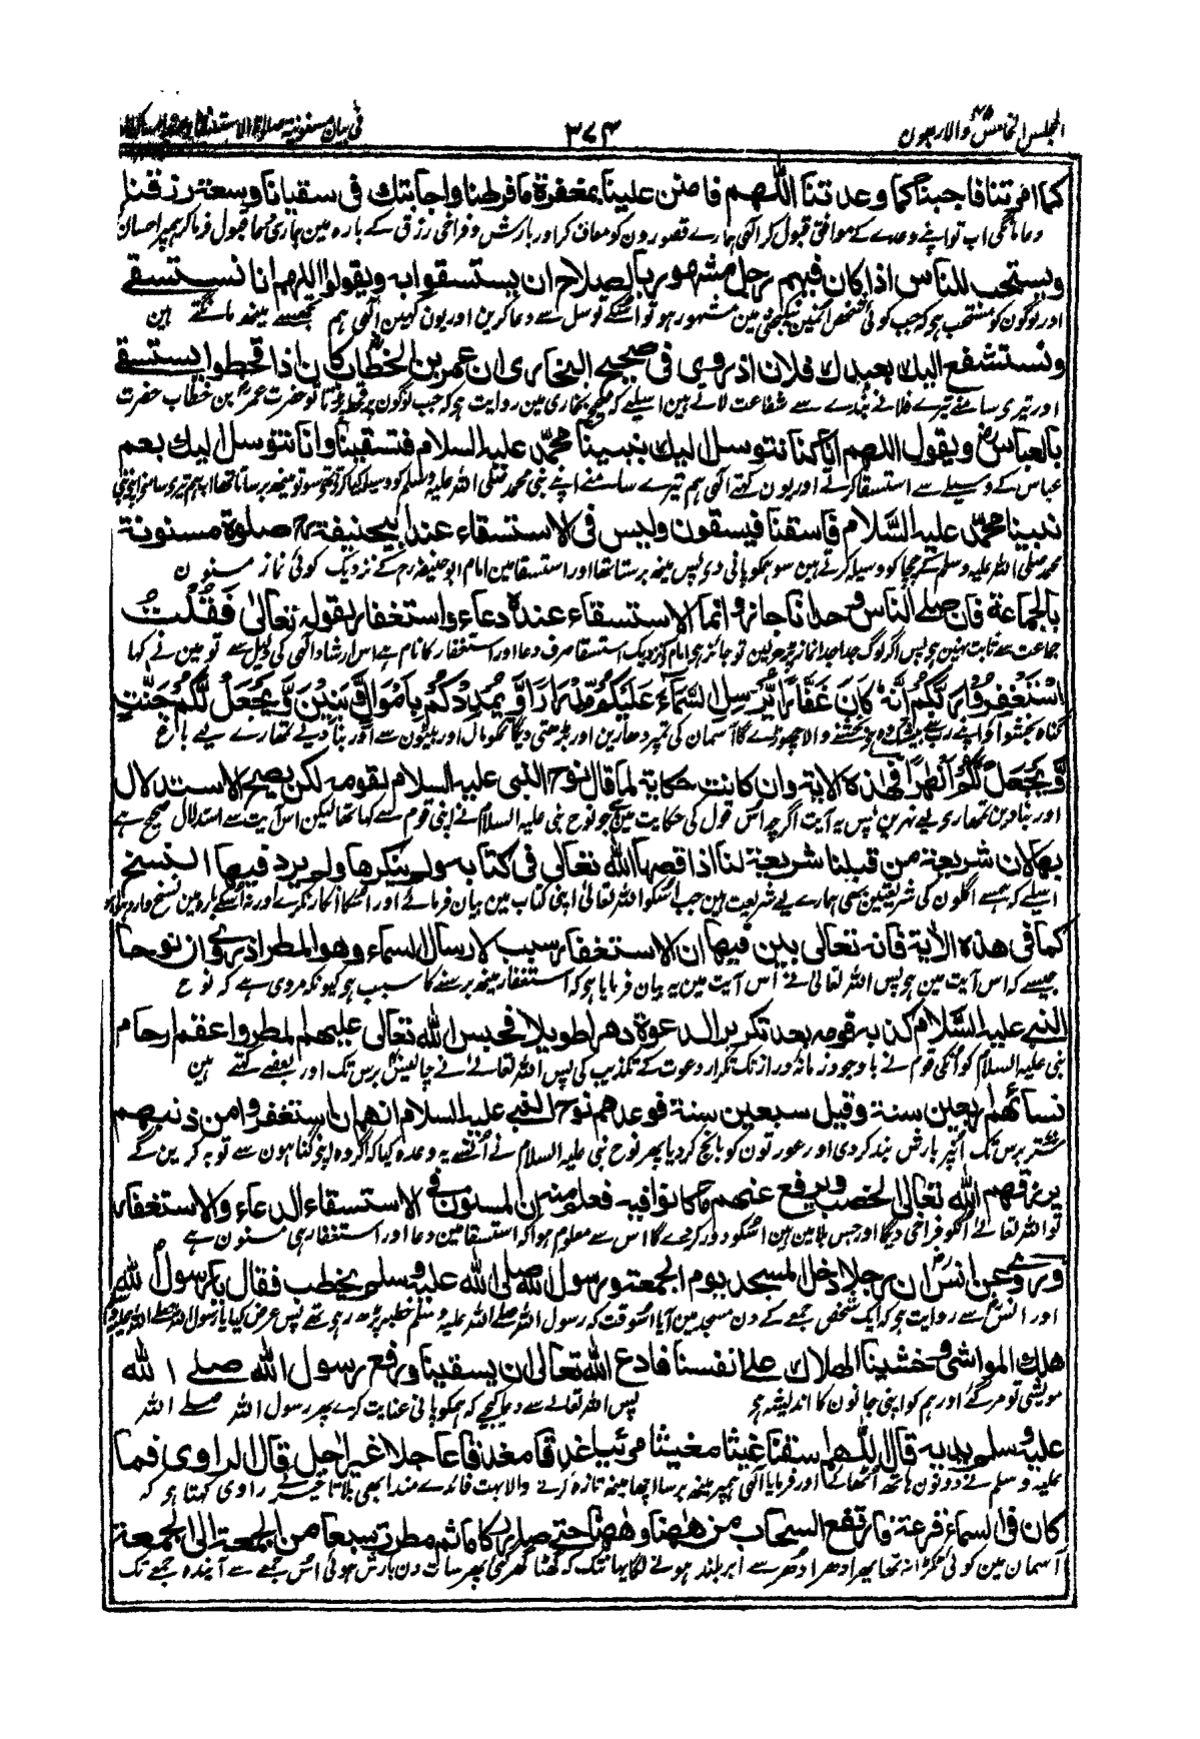 المجلس الخامس والاربعون
٣٧٤
فی بیان مسنونیة صلوة الاستسقاء
كما امرتنا فاجبنا كما وعدتنا اللّٰهم فامنن علينا بمغفرة ما فرطنا واجابتك فى سقيانا وسعة رزقنا
دعا مانگی اب تو اپنے وعدے کے موافق قبول کر الٰہی ہمارے قصورون کو معاف کر اور بارش و فراخی رزق کے بارہ مین ہماری دعا قبول فرما کر ہمپر احسان
ويستحب للناس اذا كان فيهم رجل مشهور بالصلاح ان يستسقوا به ويقولوا اللهم انا نستسقے
اور لوگون کو مستحب ہی کہ جب کوئی شخص انمین نیکبختی مین مشہور ہو تو اسکے توسل سے دعا کرین اور یون کہین الٰہی ہم تجھسے مینھ مانگتے ہین
ونستشفع اليك بعبدك فلان اذ روى فى صحيح البخارى ان عمر بن الخطاب كان اذا قحطوا يستسقے
اور تیری سامنے تیرے فلانے بندے سے شفاعت لاتے ہین اسلیے کہ صحیح بخاری مین روایت ہی کہ جب لوگون پر قحط پڑتا تو حضرت عمر بن خطاب حضرت
بالعباس ويقول اللهم انا كنا نتوسل اليك بنبينا محمّد عليه السلام فتسقينا وانا نتوسل اليك بعم
عباس کے وسیلے سے استسقا کرتے اور یون کہتے الٰہی ہم تیرے سامنے اپنے نبی محمد صلی اللہ علیہ وسلم کو وسیلہ کیا کرتے تھے سو تو مینھ برساتا تھا اب ہم تیری سامنے اپنی نبی
نبينا محمّد عليه السَّلام فاسقنا فيسقون وليس فى الاستسقاء عند ابيحنيفة رح صلوة مسنونة
محمد صلی اللہ علیہ وسلم کے چچا کو وسیلہ کرتے ہین سو ہمکو پانی دی پس مینھ برستا تھا اور استسقا مین امام ابو حنیفہ رح کے نزدیک کوئی نماز مسنون
بالجماعة فان صلى الناس وحدانا جاز وانما الاستسقاء عنده دعاء واستغفار لقوله تعالىٰ فَقُلْتُ
جماعت سے ثابت نہین ہی پس اگر لوگ جدا جدا نماز پڑھ لین تو جائز ہی امام کے نزدیک استسقا صرف دعا اور استغفار کا نام ہے اس ارشاد الٰہی کی دلیل سے تو مین نے کہا
اسْتَغْفِرُوْا رَبَّكُمْ اِنَّهٗ كَانَ غَفَّارًا يُّرْسِلِ السَّمَآءَ عَلَيْكُمْ مِّدْرَارًا وَّيُمْدِدْكُمْ بِاَمْوَالٍ وَّبَنِيْنَ وَيَجْعَلْ لَّكُمْ جَنّٰتٍ
گناہ بخشوا و اپنے رب سے بیشک وہ ہی بخشنے والا چھوڑ دے گا آسمان کی تمپر دھارین اور بڑھتی دیگا تمکو مال اور بیٹون سے اور بنا دیگا تمھارے لیے باغ
وَّيَجْعَلْ لَّكُمْ اَنْهٰرًا فهذه الاية وان كانت حكاية لما قال نوح النبى عليه السلام لقومه لكن يصح الاستدلال
اور بنا دینگا تمھاری لیے نہرین پس یہ آیت اگرچہ اس قول کی حکایت ہی جو نوح نبی علیہ السلام نے اپنی قوم سے کہا تھا لیکن اس آیت سے استدلال صحیح ہے
بها لان شريعة من قبلنا شريعة لنا اذا قصها اللّٰه تعالى فى كتابه ولم ينكرها ولم يرد فيها النسخ
اسلیے کہ ہمسے اگلون کی شریعتین بھی ہمارے لیے شریعت ہین جب اسکو اللہ تعالیٰ اپنی کتاب مین بیان فرمائے اور اسکا انکار نکرے اور نہ اسکے بارہ مین نسخ وارد ہوا ہو
كما فى هذه الآية فانه تعالى بين فيها ان الاستغفار سبب لارسال السماء وهو المطر اذ روى ان نوحا
جیسے کہ اس آیت مین ہی پس اللہ تعالیٰ نے اس آیت مین یہ بیان فرمایا ہو کہ استغفار مینھ برسنے کا سبب ہی کیونکہ مروی ہے کہ نوح
النبے عليه السَّلام كذبه قومه بعد تكرير الدعوة دهرا طويلا فحبس اللّٰه تعالى عليهم المطر واعقم ارحام
نبی علیہ السلام کو انکی قوم نے باوجود زمانہ دراز تک تکرار دعوت کے تکذیب کی پس اللہ تعالےٰ نے چالیس برس تک اور بعضے کہتے ہین
نسائهم اربعين سنة وقيل سبعين سنة فوعدهم نوح النبے عليه السلام انهم ان استغفروا من ذنبهم
ستر برس تک انپر بارش بند کر دی اور عورتون کو بانج کر دیا پھر نوح نبی علیہ السلام نے انسے یہ وعدہ کیا کہ اگر وہ اپنی گناہون سے توبہ کرین گے
يرزقهم اللّٰه تعالى الخصب ويرفع عنهم ما كانوا فيه فعلم منه ان المسنون فى الاستسقاء الدعاء والاستغفار
تو اللہ تعالےٰ انکو فراخی دیگا اور جس بلا مین ہین اسکو دور کر دے گا اس سے معلوم ہوا کہ استسقا مین دعا اور استغفار ہی مسنون ہے
وروى عن انس ان رجلا دخل المسجد يوم الجمعة ورسول اللّٰه صلى اللّٰه عليه وسلم يخطب فقال يا رسول اللّٰه
اور انس سے روایت ہی کہ ایک شخص جمعے کے دن مسجد مین آیا اسوقت کہ رسول اللہ صلے اللہ علیہ وسلم خطبہ پڑھ رہی تھے پس عرض کیا یا رسول اللہ صلے اللہ علیہ وسلم
هلك المواشى وخشينا الهلاك على انفسنا فادع اللّٰه تعالى ان يسقينا ورفع رسول اللّٰه صلے اللّٰه
مویشی تو مر گئے اور ہم کو اپنی جانون کا اندیشہ ہی پس اللہ تعالےٰ سے دعا کیجے کہ ہمکو پانی عنایت کرے پھر رسول اللہ صلے اللہ
عليه وسلم يديه قال اللّٰهم اسقنا غيثا مغيثا مريئا غدقا مغدقا عاجلا غير اجل قال الراوى فما
علیہ وسلم نے دونون ہاتھ اٹھائے اور فرمایا الٰہی ہمپر مینھ برسا اچھا مینھ تازہ کرنے والا بہت فائدے مند ابھی بلا تاخیر راوی کہتا ہو کہ
كان فى السماء قزعة فارتفع السحاب من ههنا وههنا حتے صار ركاما ثم مطرت سبعا من الجمعة الى الجمعة
آسمان مین کوئی ٹکڑا نہ تھا پھر ادھر ادھر سے ابر بلند ہونے لگا یہانتک کہ گھٹا گھر گئی پھر سات دن بارش ہوئی اس جمعے سے آیندہ جمعے تک